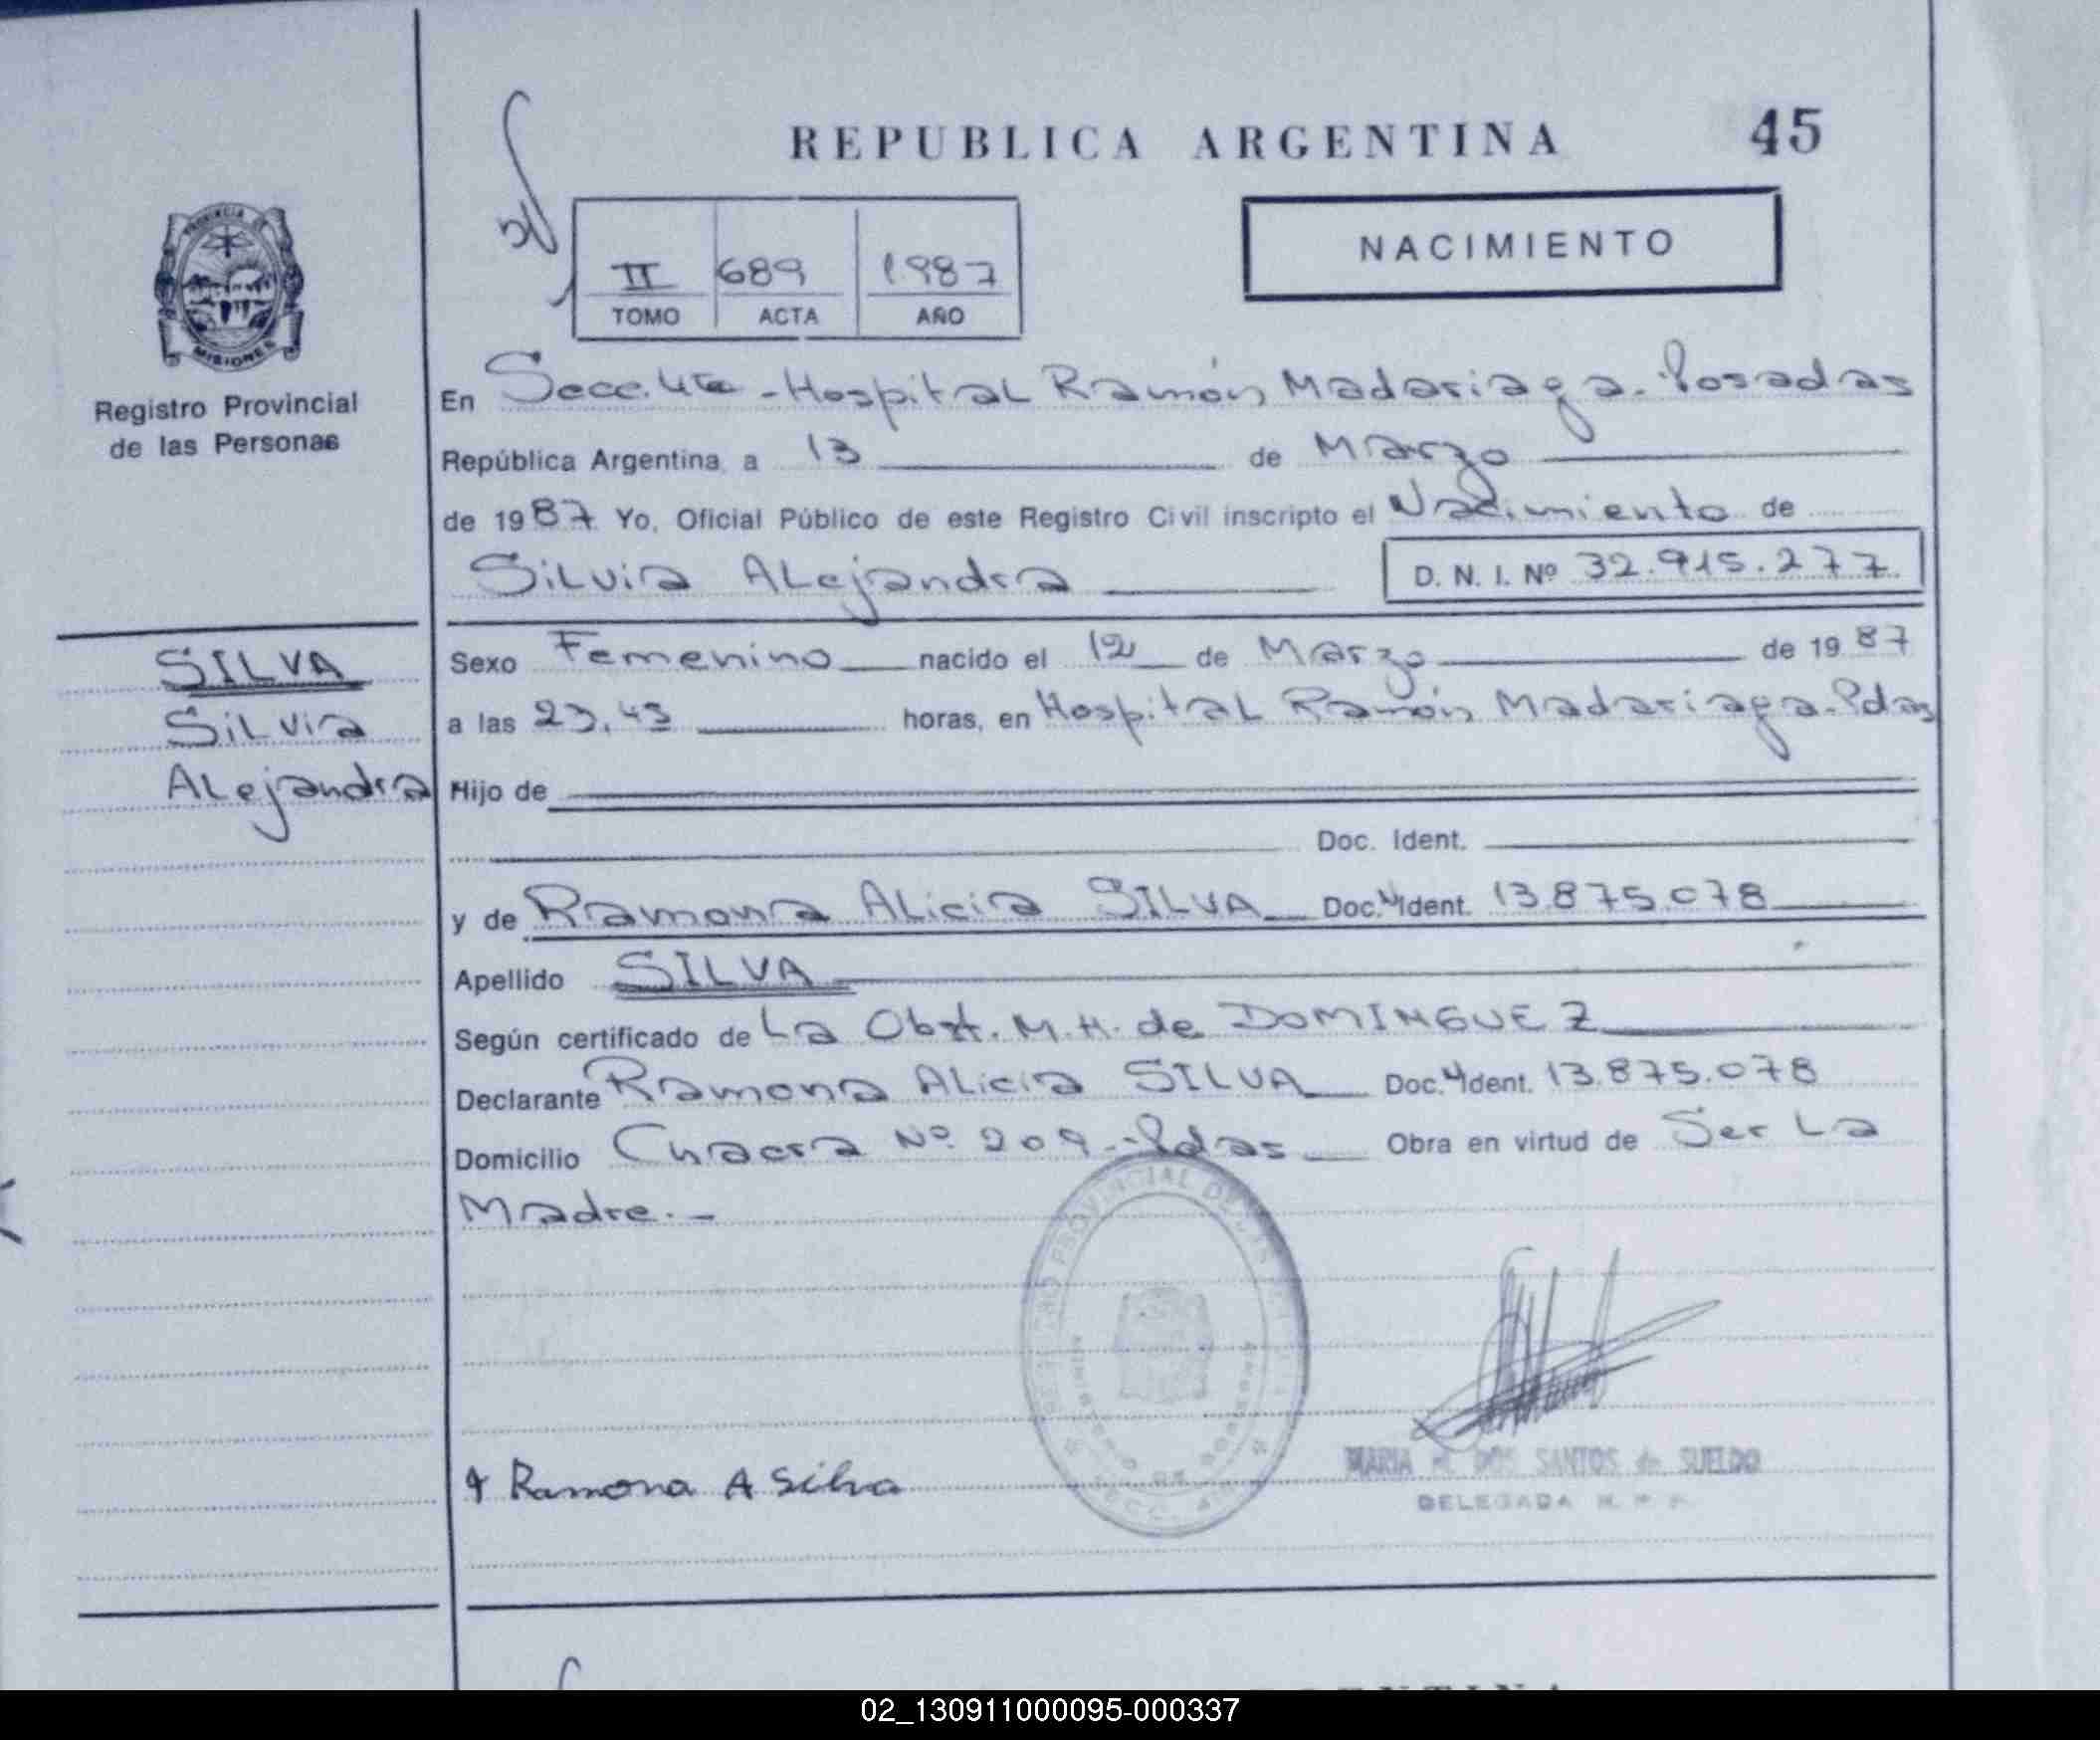 REPUBLICA ARGENTINA 45
NACIMIENTO
II 689 1987
TOMO ACTA AÑO
PROVINCIA DE
MISIONES
Registro Provincial
de las Personas
En Secc. 4ta - Hospital Ramón Madariaga - Posadas
República Argentina a 13 de Marzo
de 1987 Yo, Oficial Público de este Registro Civil inscripto el Nacimiento de
Silvia Alejandra D. N. I. Nº 32.915.277
SILVA
Silvia
Alejandra
Sexo Femenino nacido el 12 de Marzo de 1987
a las 23,45 horas, en Hospital Ramón Madariaga - Pdas
Hijo de
Doc. Ident.
y de Ramona Alicia SILVA Doc. Ident. 13.875.078
Apellido SILVA
Según certificado de La Obst. M. H. de DOMINGUEZ
Declarante Ramona Alicia SILVA Doc. Ident. 13.875.078
Domicilio Chacra Nº 209 - Pdas Obra en virtud de Ser La
Madre. -
REGISTRO PROVINCIAL DE LAS
MARIA DOS SANTOS de SUELDO
DELEGADA
Ramona A Silva
02_130911000095-000337